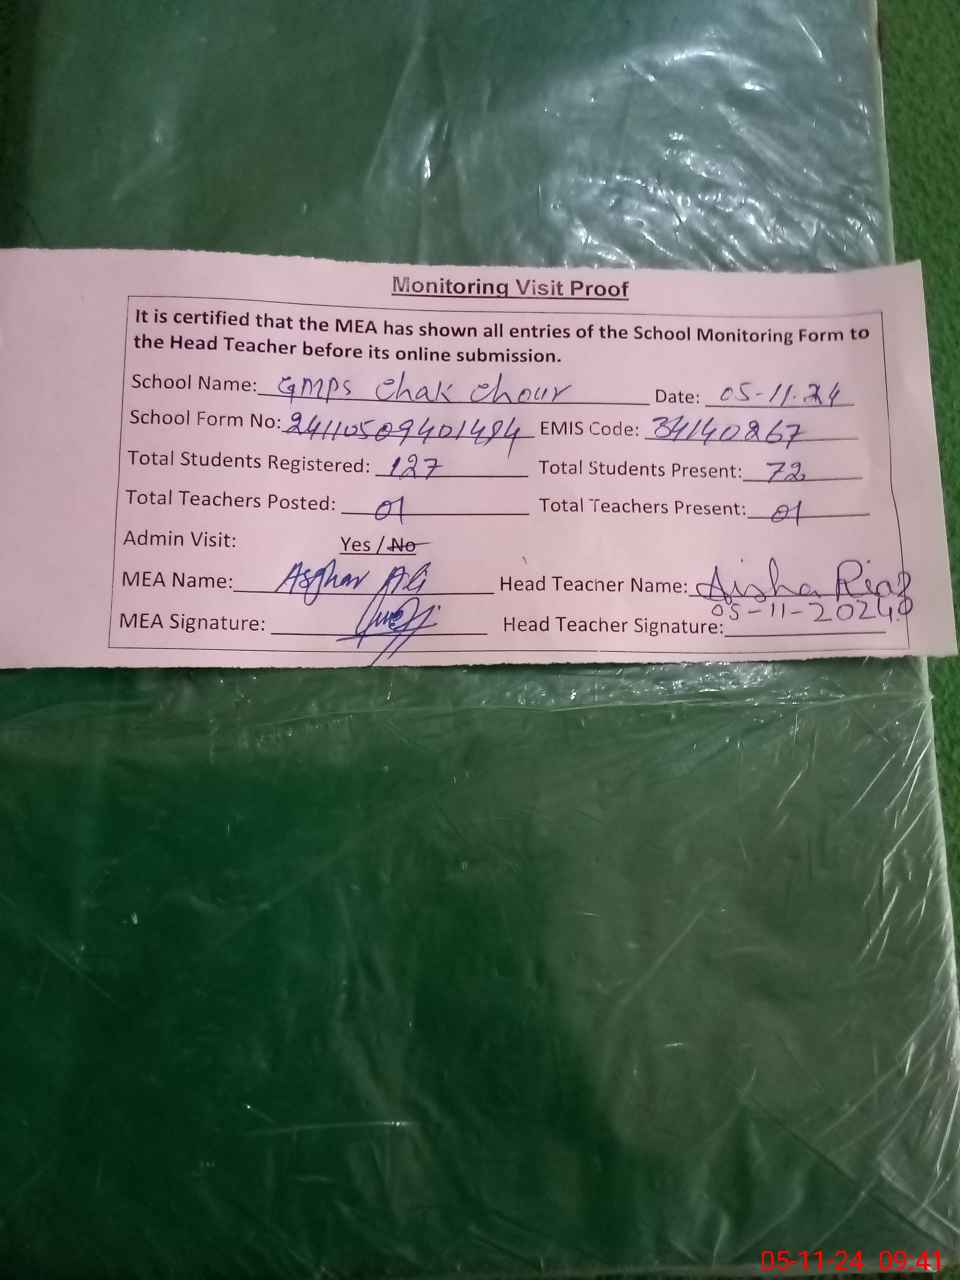 Monitoring Visit Proof
It is certified that the MEA has shown all entries of the School Monitoring Form to
the Head Teacher before its online submission.
School Name: GMPS Chak Chour Date: 05-11-24
School Form No: EMIS Code: 34140267
Total Students Registered: 127 Total Students Present: 72
Total Teachers Posted: 01 Total Teachers Present: 01
Admin Visit: Yes / No
MEA Name: Asghar Ali Head Teacher Name: Aisha Riaz
05-11-2024
MEA Signature: Head Teacher Signature:
05-11-24 09:41